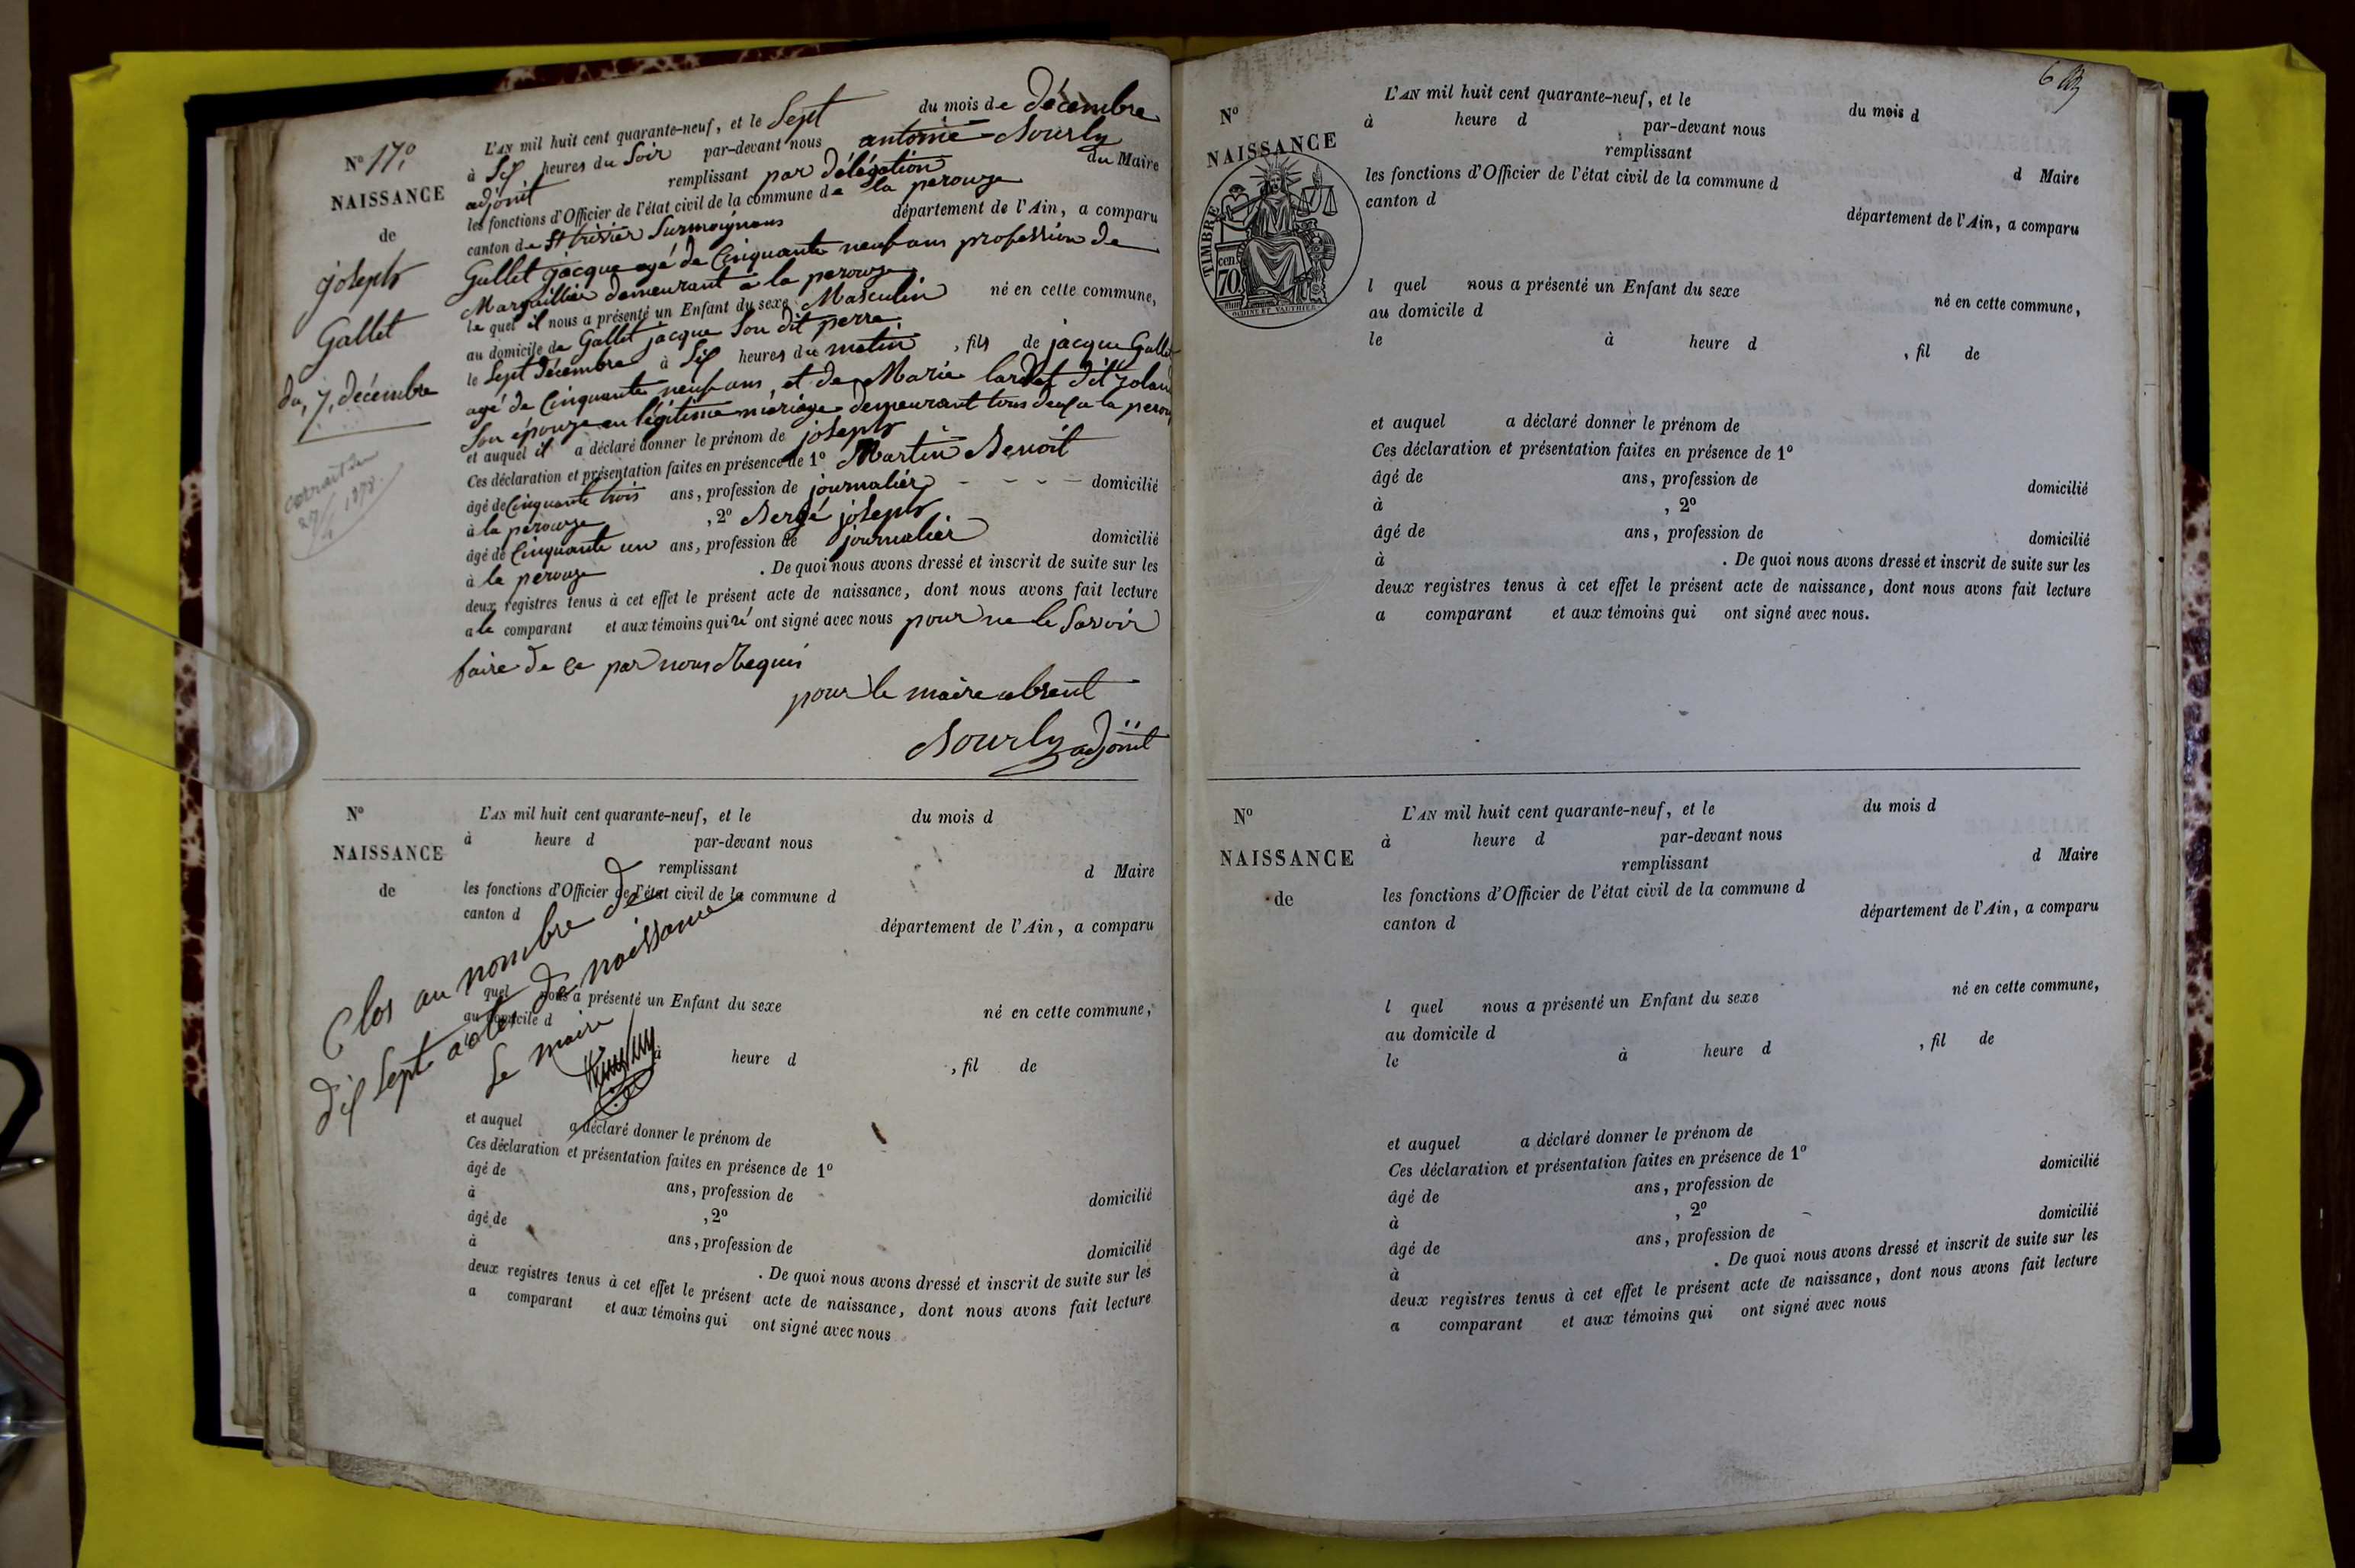 N° 17.
NAISSANCE
de
joseph
Gallet
du, 7, décembre
extrait du
27/4 1878.
L'AN mil huit cent quarante-neuf, et le Sept du mois de décembre
à Six heures du Soir par-devant nous antoine Nourly
adjoint remplissant par délégation du Maire
les fonctions d'Officier de l'état civil de la commune de la perouze
canton de St trivier Surmoignans département de l'Ain, a comparu
Gallet jacque agé de Cinquante neuf ans profession de
Marguillier demeurant a la perouze
le quel il nous a présenté un Enfant du sexe Masculin né en cette commune,
au domicile de Gallet jacque Son dit perre
le Sept décembre à Six heures du matin, fils de jacque Gallet
agé de Cinquante neuf ans, et de Marie lardet dit yoland
Son épouze en légitime mériage demeurant tous deux a la perouze
et auquel il a déclaré donner le prénom de joseph
Ces déclaration et présentation faites en présence de 1° Martin Benoit
âgé de Cinquante trois ans, profession de journalier - - - - domicilié
à la perouze, 2° joseph
âgé de Cinquante un ans, profession de journalier domicilié
à la perouze. De quoi nous avons dressé et inscrit de suite sur les
deux registres tenus à cet effet le présent acte de naissance, dont nous avons fait lecture
a le comparant et aux témoins qui n'ont signé avec nous pour ne le Savoir
faire de ce par nous Requis
pour le maire absent
Nourly adjoint
N°
NAISSANCE
de
L'AN mil huit cent quarante-neuf, et le du mois d
à heure d par-devant nous
remplissant d Maire
les fonctions d'Officier de l'état civil de la commune d
canton d département de l'Ain, a comparu
quel nous a présenté un Enfant du sexe né en cette commune,
au domicile d
à heure d , fil de
Clos au nombre de
dix Sept actes de naissance
Le maire
et auquel a déclaré donner le prénom de
Ces déclaration et présentation faites en présence de 1°
âgé de ans, profession de domicilié
à , 2°
âgé de ans, profession de domicilié
à . De quoi nous avons dressé et inscrit de suite sur les
deux registres tenus à cet effet le présent acte de naissance, dont nous avons fait lecture
a comparant et aux témoins qui ont signé avec nous
6
N°
NAISSANCE
TIMBRE
70 cen.
OUDINÉ ET VAUTHIER
L'AN mil huit cent quarante-neuf, et le du mois d
à heure d par-devant nous
remplissant d Maire
les fonctions d'Officier de l'état civil de la commune d
canton d département de l'Ain, a comparu
l quel nous a présenté un Enfant du sexe né en cette commune,
au domicile d
le à heure d , fil de
et auquel a déclaré donner le prénom de
Ces déclaration et présentation faites en présence de 1°
âgé de ans, profession de domicilié
à , 2°
âgé de ans, profession de domicilié
à . De quoi nous avons dressé et inscrit de suite sur les
deux registres tenus à cet effet le présent acte de naissance, dont nous avons fait lecture
a comparant et aux témoins qui ont signé avec nous.
N°
NAISSANCE
de
L'AN mil huit cent quarante-neuf, et le du mois d
à heure d par-devant nous
remplissant d Maire
les fonctions d'Officier de l'état civil de la commune d
canton d département de l'Ain, a comparu
l quel nous a présenté un Enfant du sexe né en cette commune,
au domicile d
le à heure d , fil de
et auquel a déclaré donner le prénom de
Ces déclaration et présentation faites en présence de 1°
âgé de ans, profession de domicilié
à , 2°
âgé de ans, profession de domicilié
à . De quoi nous avons dressé et inscrit de suite sur les
deux registres tenus à cet effet le présent acte de naissance, dont nous avons fait lecture
a comparant et aux témoins qui ont signé avec nous